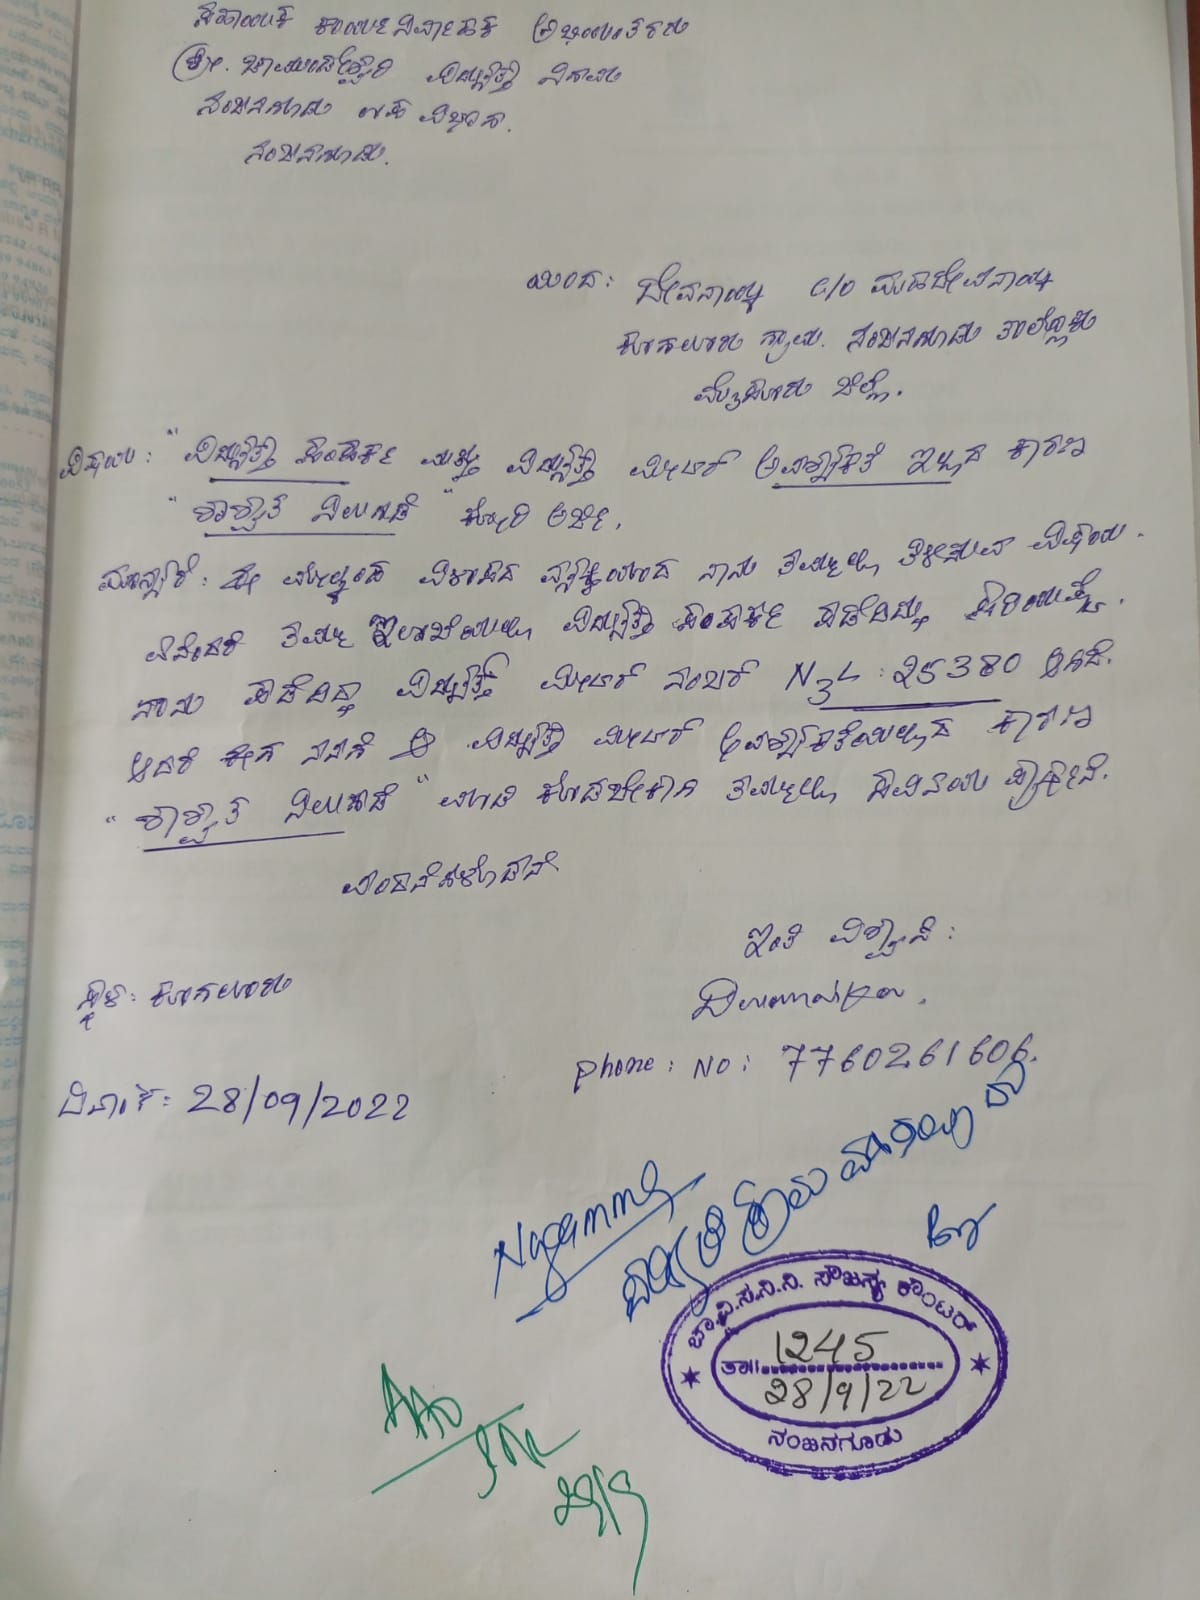 ಸಹಾಯಕ ಕಾರ್ಯನಿರ್ವಾಹಕ ಅಭಿಯಂತರರು
ಶ್ರೀ. ಚಾಮುಂಡೇಶ್ವರಿ ವಿದ್ಯುತ್ ನಿಗಮ
ನಂಜನಗೂಡು ಉಪ ವಿಭಾಗ.
ನಂಜನಗೂಡು.
ಯಿಂದ: ದೇವನಾಯ್ಕ C/O ಮಾದೇವನಾಯ್ಕ
ಗ್ರಾಮ. ನಂಜನಗೂಡು ತಾಲ್ಲೂಕು
ಮೈಸೂರು ಜಿಲ್ಲೆ.
ವಿಷಯ: "ವಿದ್ಯುತ್ ಸಂಪರ್ಕ ಮತ್ತು ವಿದ್ಯುತ್ ಮೀಟರ್ ಅವಶ್ಯಕತೆ ಇಲ್ಲದ ಕಾರಣ
"ಶಾಶ್ವತ ನಿಲುಗಡೆ" ಕೋರಿ ಅರ್ಜಿ.
ಮಾನ್ಯರೆ: ಈ ಮೇಲ್ಕಂಡ ವಿಳಾಸದ ವ್ಯಕ್ತಿಯಾದ ನಾನು ತಮ್ಮಲ್ಲಿ ತಿಳಿಸುವ ವಿಷಯ.
ಏನೆಂದರೆ ತಮ್ಮ ಇಲಾಖೆಯಲ್ಲಿ ವಿದ್ಯುತ್ ಸಂಪರ್ಕ ಪಡೆದಿದ್ದು ಸರಿಯಷ್ಟೆ.
ನಾನು ಪಡೆದಿದ್ದ ವಿದ್ಯುತ್ ಮೀಟರ್ ನಂಬರ್ N3L: 25380 ಆಗಿದೆ.
ಆದರೆ ಈಗ ನನಗೆ ಆ ವಿದ್ಯುತ್ ಮೀಟರ್ ಅವಶ್ಯಕತೆಯಿಲ್ಲದ ಕಾರಣ
"ಶಾಶ್ವತ ನಿಲುಗಡೆ" ಮಾಡಿ ಕೊಡಬೇಕಾಗಿ ತಮ್ಮಲ್ಲಿ ಸವಿನಯ ಪ್ರಾರ್ಥನೆ.
ವಂದನೆಗಳೊಡನೆ
ಇಂತಿ ವಿಶ್ವಾಸಿ:
ಸ್ಥಳ:
Phone: NO: 7760261606.
ದಿನಾಂಕ: 28/09/2022
Nagamma
ಚಾ.ವಿ.ಸ.ನಿ.ನಿ. ಸೌಜನ್ಯ ಕೌಂಟರ್
ತಾ॥ 1245
28/9/22
ನಂಜನಗೂಡು
AAO